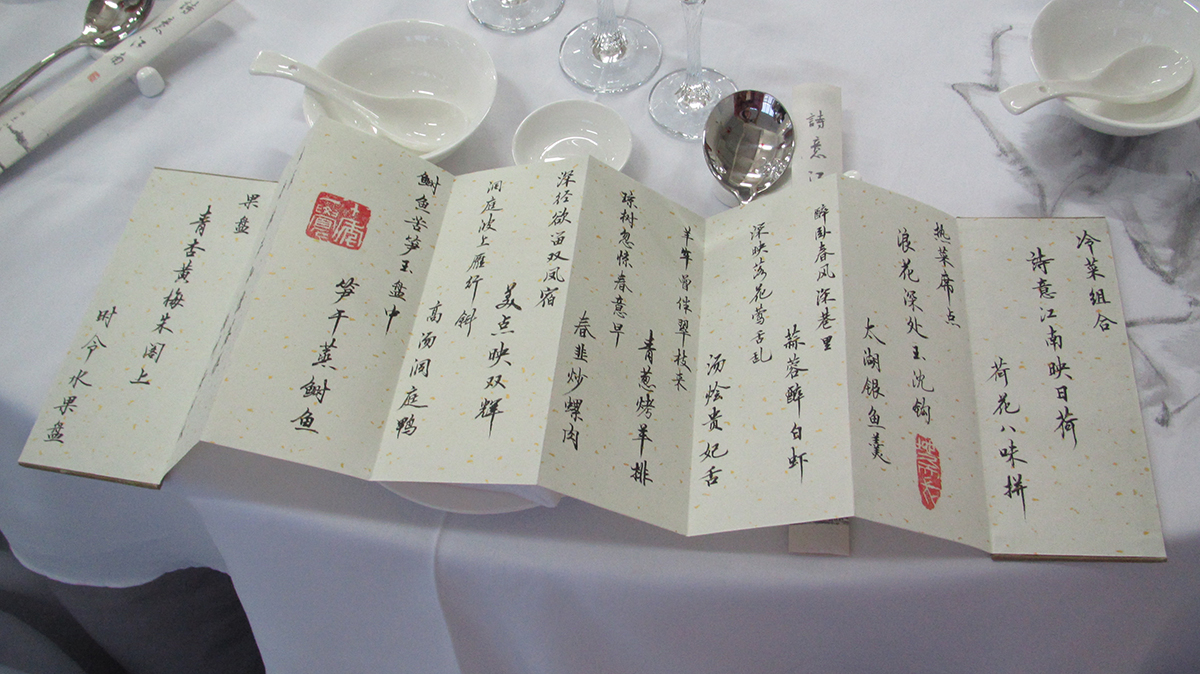 冷菜组合
诗意江南映日荷
荷花八味拼
热菜席点
浪花深处玉沈钩
太湖银鱼羹
醉卧春风深巷里
蒜蓉醉白虾
深映落花莺舌乱
汤烩贵妃舌
羊车曾伴翠枝来
青葱烤羊排
琼树忽惊春意早
春韭炒螺肉
深径欲留双凤宿
美点映双辉
洞庭波上雁行斜
高汤洞庭鸭
鲥鱼苦笋玉盘中
笋干蒸鲥鱼
果盘
青杏黄梅朱阁上
时令水果盘
詩意江
詩意江南